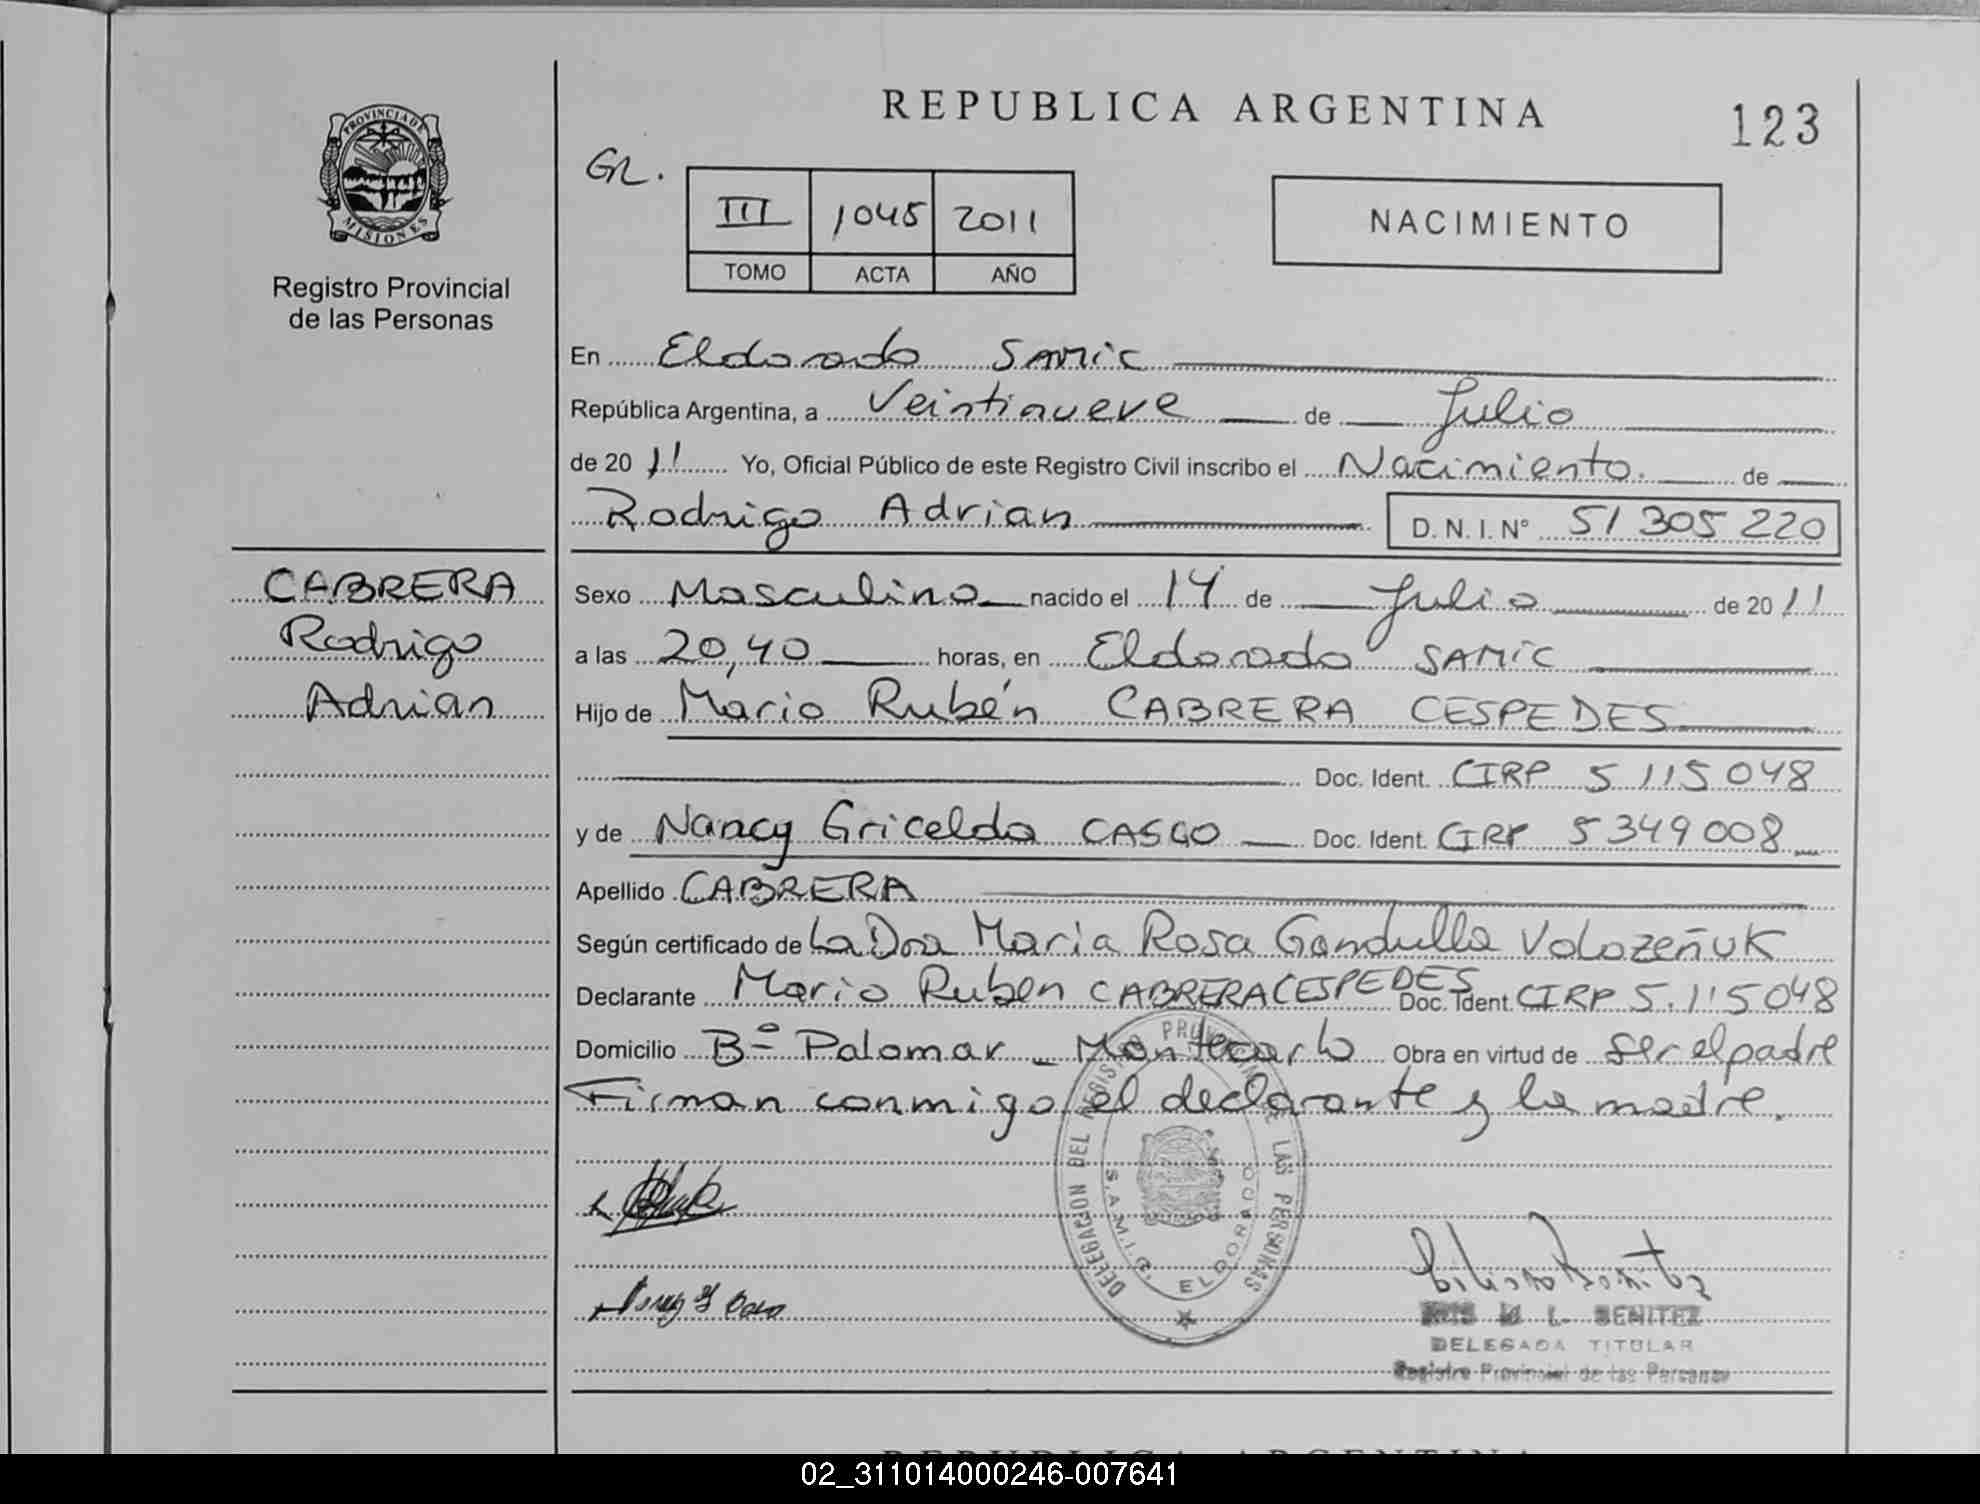 PROVINCIA DE
MISIONES
Registro Provincial
de las Personas
REPUBLICA ARGENTINA
123
GR.
III 1045 2011
TOMO ACTA AÑO
NACIMIENTO
En Eldorado SAMIC
República Argentina, a Veintinueve de Julio
de 20 11 Yo, Oficial Público de este Registro Civil inscribo el Nacimiento. de
Rodrigo Adrian D. N. I. N° 51 305 220
CABRERA
Rodrigo
Adrian
Sexo Masculino nacido el 14 de Julio de 20 11
a las 20,40 horas, en Eldorado SAMIC
Hijo de Mario Rubén CABRERA CESPEDES
Doc. Ident. CIRP 5 115 048
y de Nancy Gricelda CASCO Doc. Ident. CIRP 5 349 008
Apellido CABRERA
Según certificado de La Dra Maria Rosa Gandulla Volozeñuk
Declarante Mario Ruben CABRERA CESPEDES Doc. Ident. CIRP 5.115 048
Domicilio B° Palomar - Montecarlo Obra en virtud de ser el padre
Firman conmigo el declarante y la madre.
DELEGACION DEL REGISTRO PROVINCIAL DE LAS PERSONAS
S.A.M.I.C. ELDORADO
L. BENITEZ
DELEGADA TITULAR
Registro Provincial de las Personas
REPUBLICA ARGENTINA
02_311014000246-007641